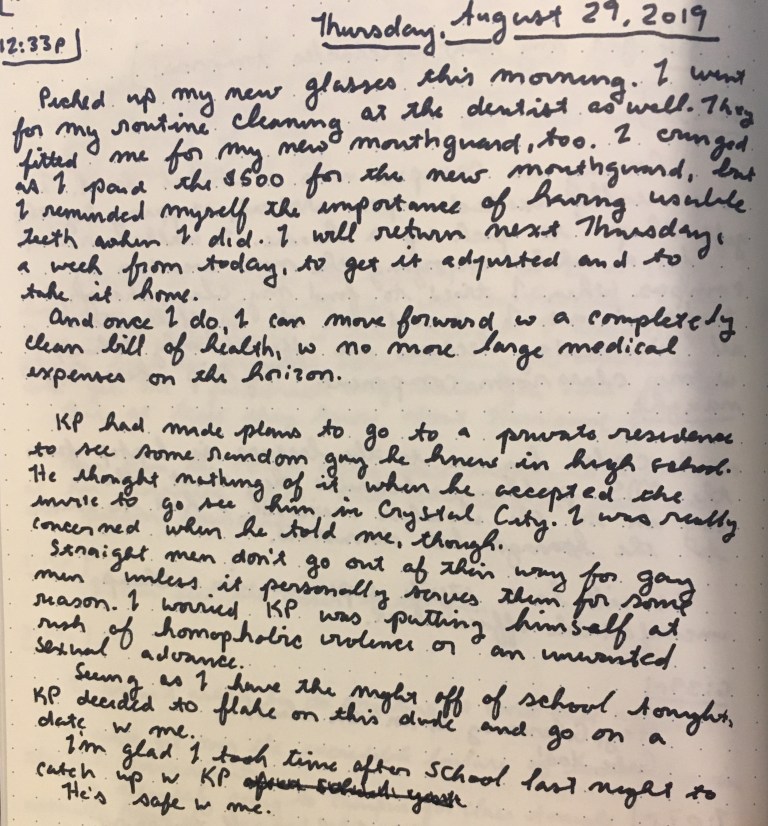 Thursday, August 29, 2019
12:33P
Picked up my new glasses this morning. I went
for my routine cleaning at the dentist as well. They
fitted me for my new mouthguard, too. I cringed
as I paid the $500 for the new mouthguard, but
I reminded myself the importance of having usable
teeth when I did. I will return next Thursday,
a week from today, to get it adjusted and to
take it home.
And once I do, I can move forward w a completely
clean bill of health, w no more large medical
expenses on the horizon.
KP had made plans to go to a private residence
to see some random guy he knew in high school.
He thought nothing of it when he accepted the
invite to go see him in Crystal City. I was really
concerned when he told me, though.
Straight men don't go out of their way for gay
men unless it personally serves them for some
reason. I worried KP was putting himself at
risk of homophobic violence or an unwanted
sexual advance.
Seeing as I have the night off of school tonight,
KP decided to flake on this dude and go on a
date w me.
I'm glad I took time after school last night to
catch up w KP
He's safe w me.